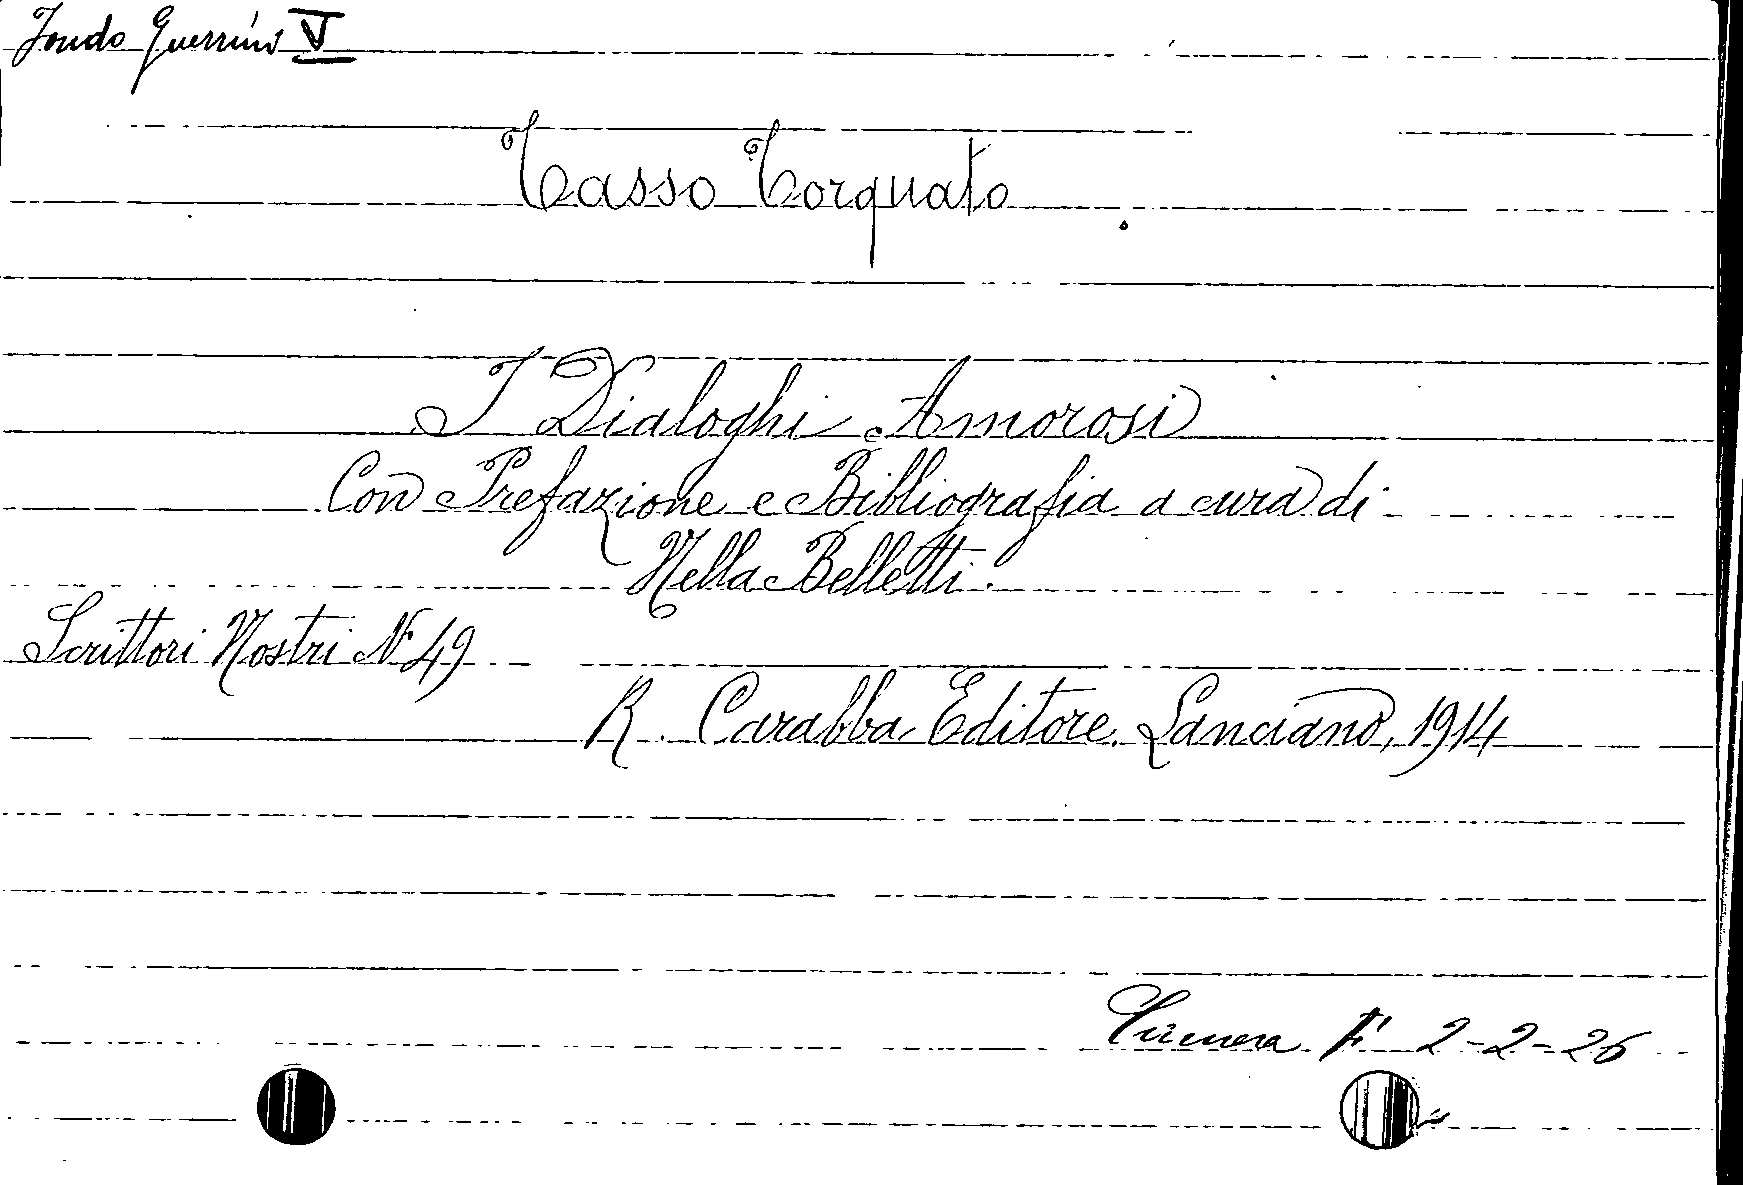 Fondo Guerrini V
Tasso Torquato
I Dialoghi Amorosi
Con Prefazione e Bibliografia a cura di
Nella Belletti.
Scrittori Nostri N 49
R. Carabba Editore. Lanciano, 1914
Camera F 2-2-26